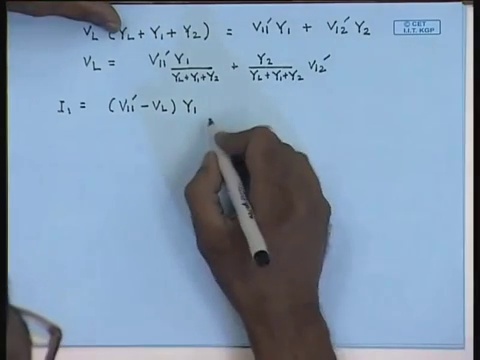 VL (YL+Y1+Y2) = V11' Y1 + V12' Y2
© CET
I.I.T. KGP
VL = V11' Y1 / YL+Y1+Y2 + Y2 / YL+Y1+Y2 V12'
I1 = (V11' - VL) Y1